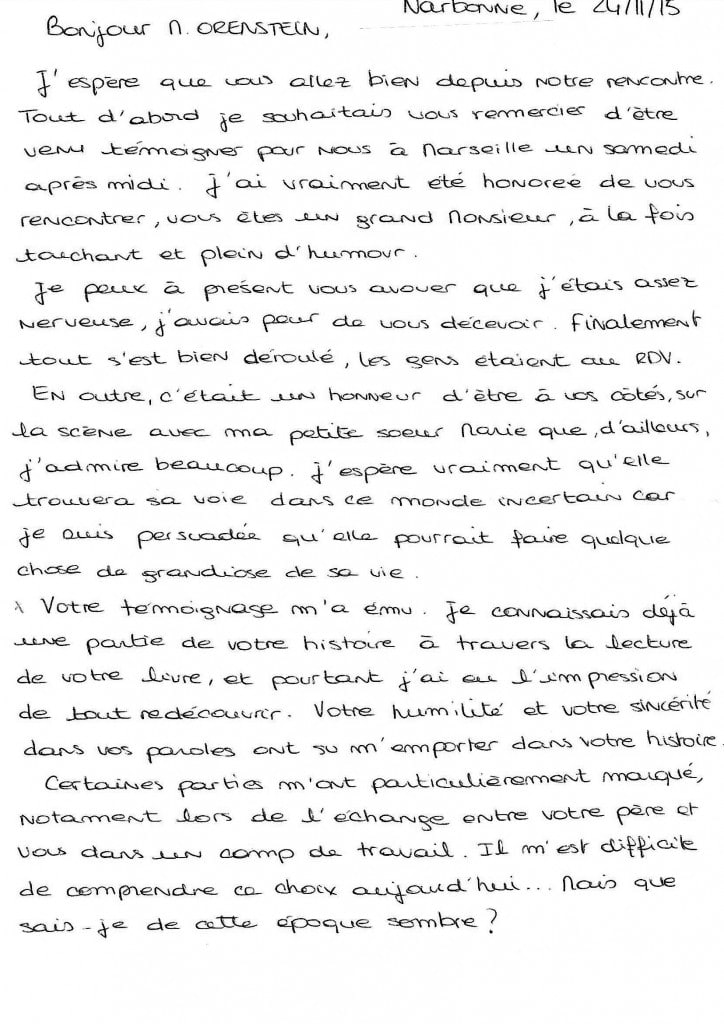 Narbonne, le 24/11/15
Bonjour M. ORENSTEIN,
J'espère que vous allez bien depuis notre rencontre.
Tout d'abord je souhaitais vous remmercier d'être
venu témoigner pour nous à Marseille un samedi
après midi. J'ai vraiment été honoreé de vous
rencontrer, vous êtes un grand Monsieur, à la fois
touchant et plein d'humour.
Je peux à présent vous avouer que j'étais assez
nerveuse, j'avais peur de vous décevoir. Finalement
tout s'est bien déroulé, les gens étaient au RDV.
En outre, c'était un honneur d'être à vos côtés, sur
la scène avec ma petite soeur Marie que, d'ailleurs,
j'admire beaucoup. J'espère vraiment qu'elle
trouvera sa voie dans ce monde incertain car
je suis persuadée qu'elle pourrait faire quelque
chose de grandiose de sa vie.
Votre témoignage m'a ému. Je connaissais déjà
une partie de votre histoire à travers la lecture
de votre livre, et pourtant j'ai eu l'impression
de tout redécouvrir. Votre humilité et votre sincérité
dans vos paroles ont su m'emporter dans votre histoire.
Certaines parties m'ont particulièrement marqué,
notament lors de l'échange entre votre père et
vous dans un camp de travail. Il m'est difficile
de comprendre ce choix aujourd'hui... Mais que
sais-je de cette époque sombre ?